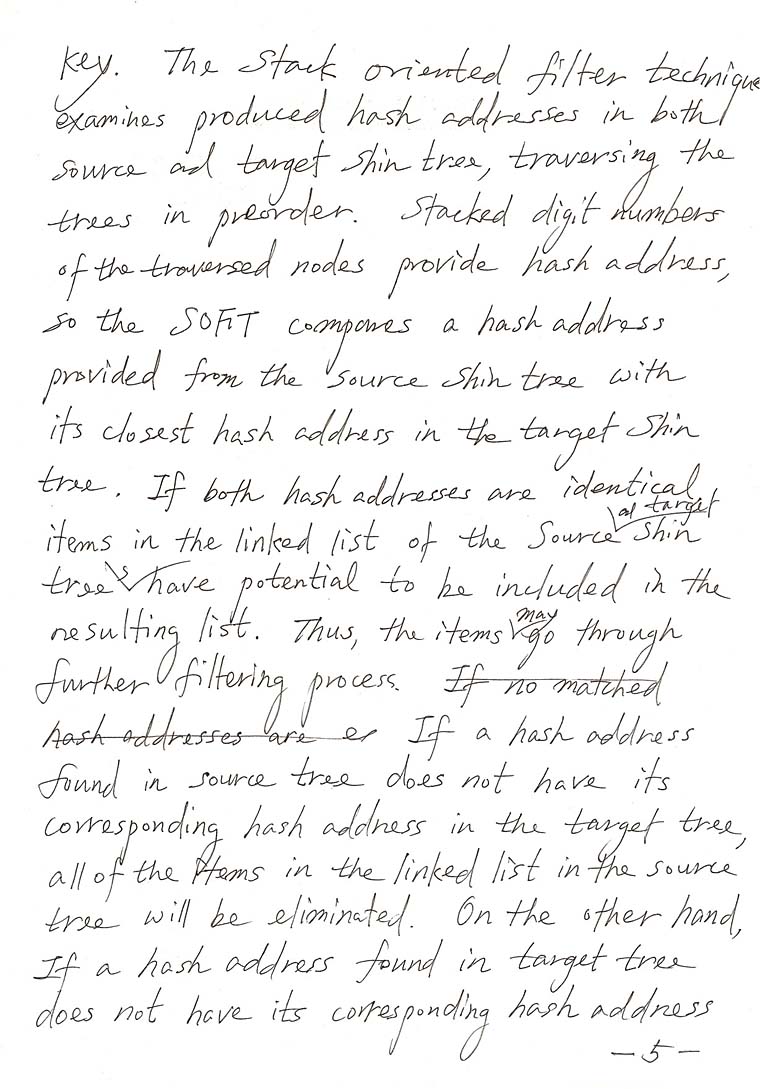 key. The Stack oriented filter technique
examines produced hash addresses in both
source ad target Shin tree, traversing the
trees in preorder. Stacked digit numbers
of the traversed nodes provide hash address,
so the SOFIT compares a hash address
provided from the source Shin tree with
its closest hash address in the target Shin
tree. If both hash addresses are identical
ad target
items in the linked list of the Source Shin
tree's have potential to be included in the
resulting list. Thus, the items may go through
further filtering process. If no matched
hash addresses are er If a hash address
found in source tree does not have its
corresponding hash address in the target tree,
all of the items in the linked list in the source
tree will be eliminated. On the other hand,
If a hash address found in target tree
does not have its corresponding hash address
-5-